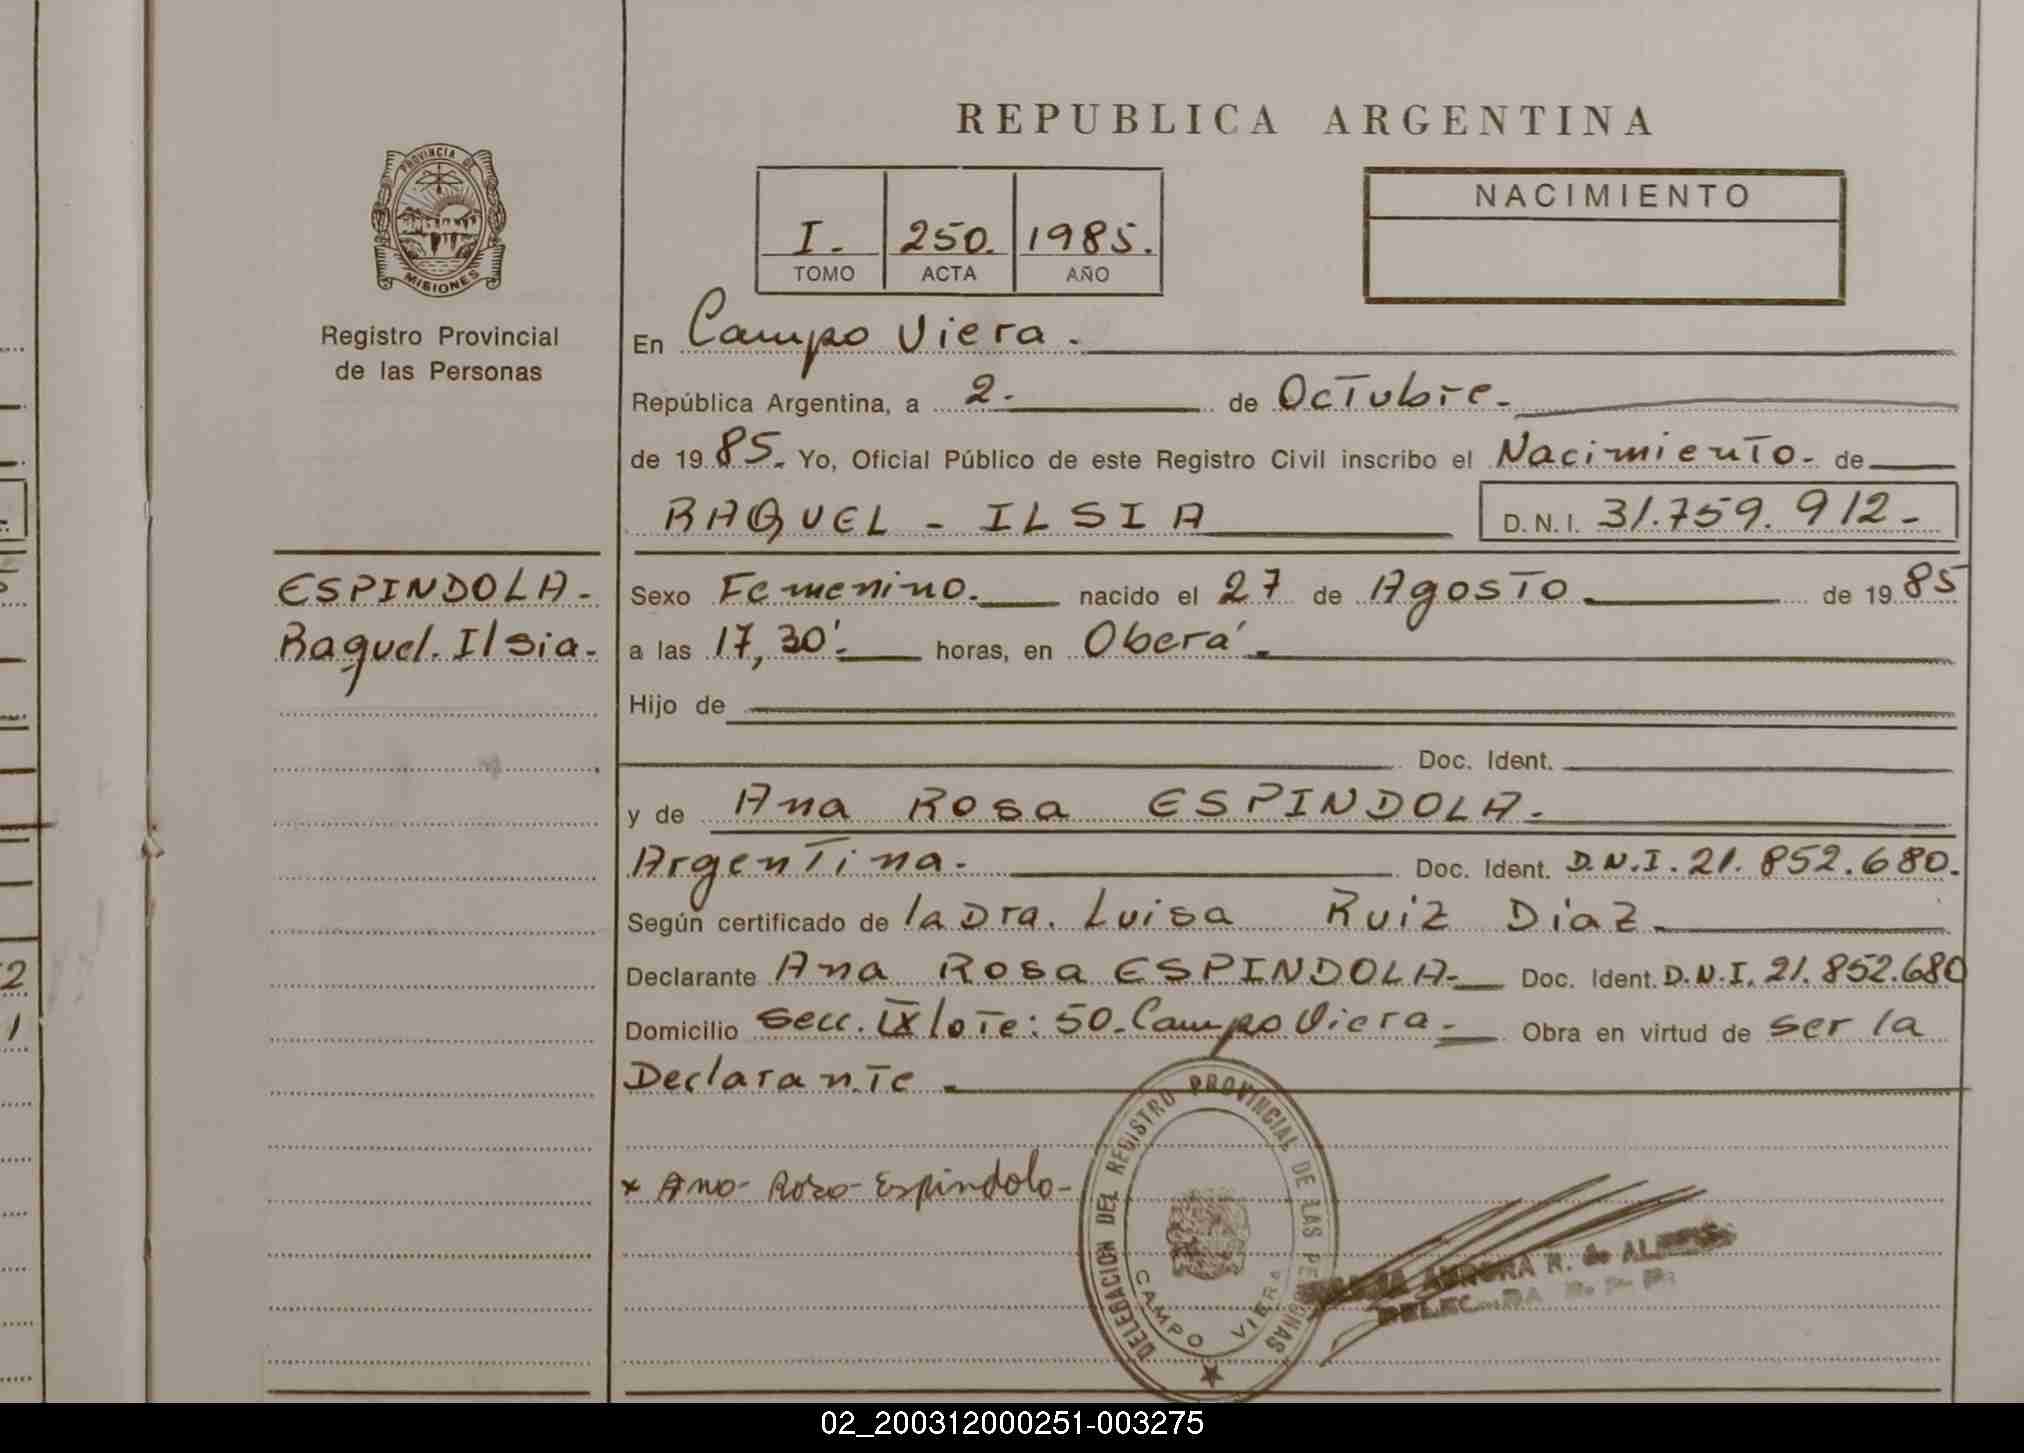 REPUBLICA ARGENTINA
PROVINCIA DE
MISIONES
Registro Provincial
de las Personas
I. 250. 1985.
TOMO ACTA AÑO
NACIMIENTO
En Campo Viera.
República Argentina, a 2. de Octubre.
de 19 85. Yo, Oficial Público de este Registro Civil inscribo el Nacimiento. de
RAQUEL - ILSIA D.N.I. 31.759.912-
ESPINDOLA.
Raquel. Ilsia.
Sexo Femenino. nacido el 27 de Agosto de 19 85
a las 17,30'. horas, en Oberá.
Hijo de
Doc. Ident.
y de Ana Rosa ESPINDOLA.
Argentina. Doc. Ident. D.N.I. 21.852.680.
Según certificado de la Dra. Luisa Ruiz Diaz.
Declarante Ana Rosa ESPINDOLA. Doc. Ident. D.N.I. 21.852.680
Domicilio Secc. IX lote: 50. Campo Viera. Obra en virtud de ser la
Declarante.
x Ana Rosa Espindola
DELEGACION DEL REGISTRO PROVINCIAL DE LAS PERSONAS
CAMPO VIERA
AURORA R. de
02_200312000251-003275